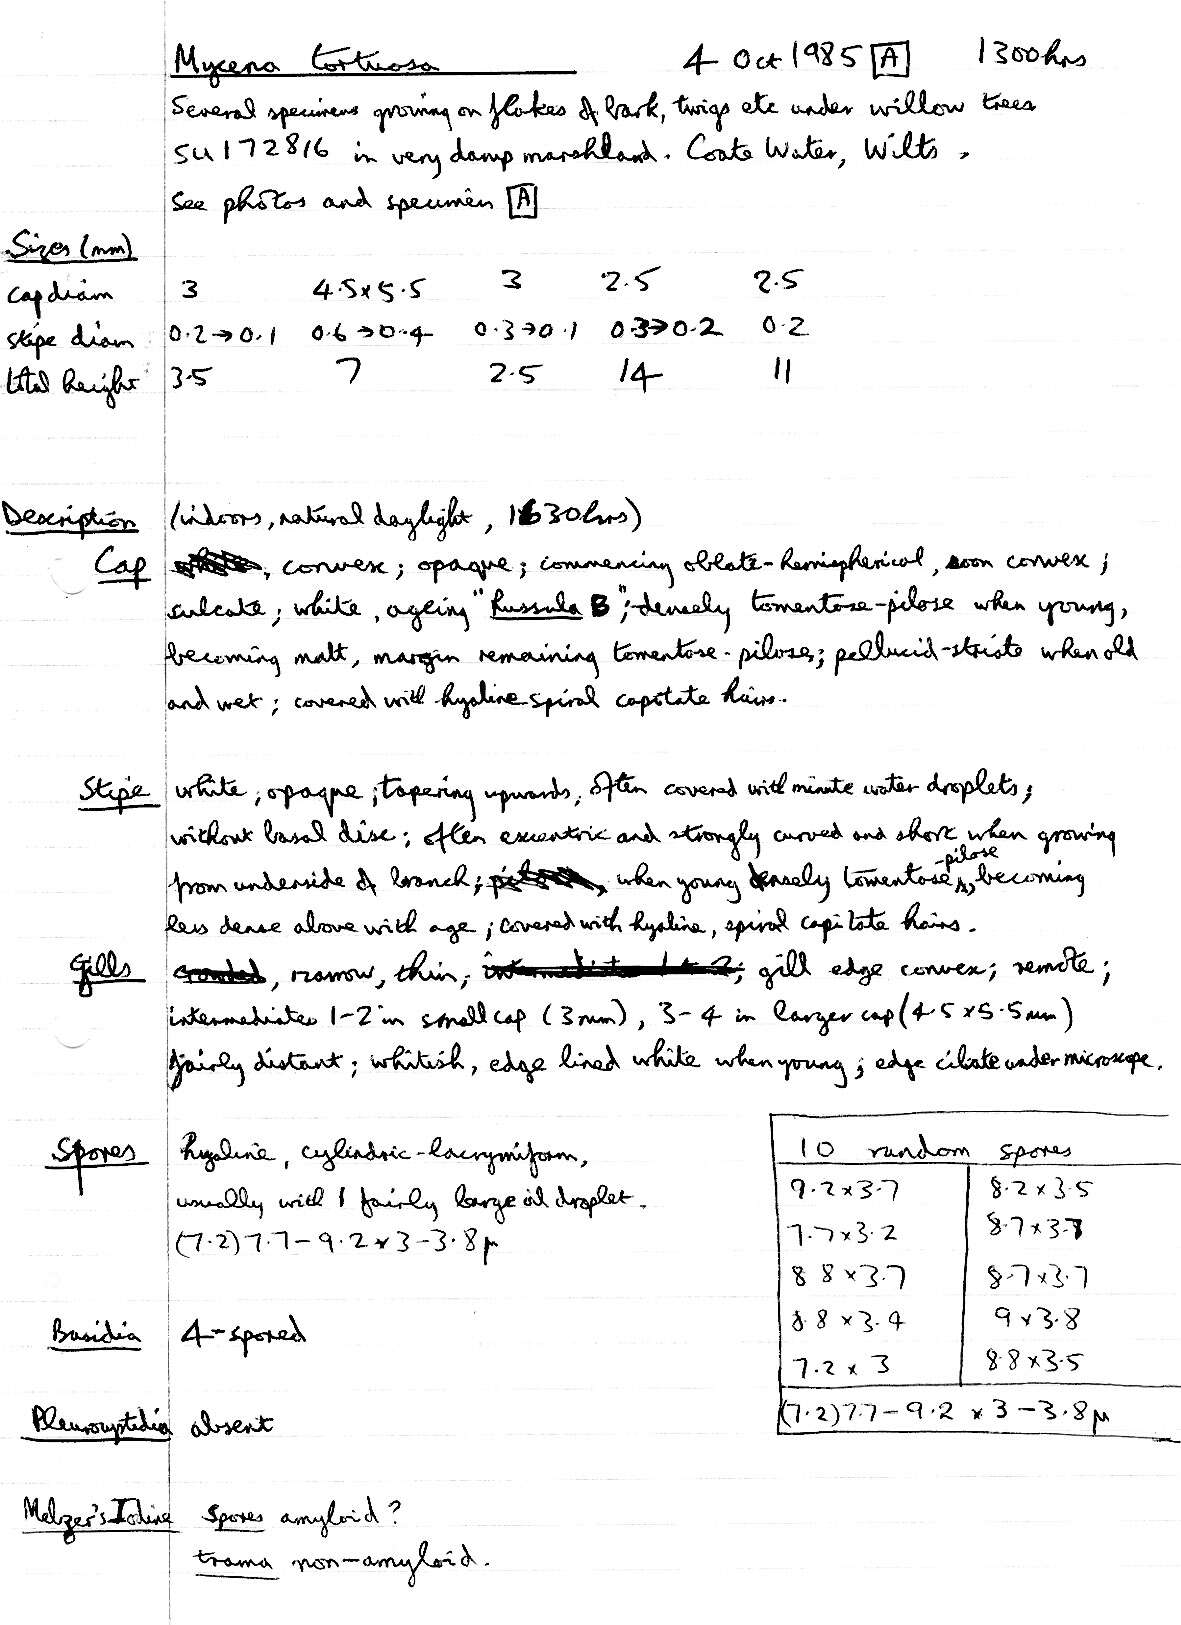 Mycena tortuosa 4 Oct 1985 [A] 1300hrs
Several specimens growing on flakes of bark, twigs etc under willow trees
SU172816 in very damp marshland. Coate Water, Wilts.
See photos and specimen [A]
Sizes (mm)
cap diam 3 4.5x5.5 3 2.5 2.5
stipe diam 0.2→0.1 0.6→0.4 0.3→0.1 0.3→0.2 0.2
total height 3.5 7 2.5 14 11
Description (indoors, natural daylight, 1630hrs)
Cap , convex; opaque; commencing oblate-hemispherical, soon convex;
sulcate; white, ageing "Russula B"; densely tomentose-pilose when young,
becoming matt, margin remaining tomentose-pilose; pellucid-striate when old
and wet; covered with hyaline spiral capitate hairs.
Stipe white; opaque; tapering upwards, often covered with minute water droplets;
without basal disc; often excentric and strongly curved and short when growing
from underside of branch; when young densely tomentose-pilose, becoming
less dense above with age; covered with hyaline, spiral capitate hairs.
Gills crowded, narrow, thin; intermediates 1 to 2; gill edge convex; remote;
intermediates 1-2 in small cap (3mm), 3-4 in larger cap (4.5x5.5mm)
fairly distant; whitish, edge lined white when young; edge ciliate under microscope.
Spores hyaline, cylindric-lacrymiform,
usually with 1 fairly large oil droplet.
(7.2)7.7-9.2 x 3-3.8µ
10 random spores
9.2x3.7 8.2x3.5
7.7x3.2 8.7x3.7
8.8x3.7 8.7x3.7
8.8x3.4 9x3.8
7.2x3 8.8x3.5
(7.2)7.7-9.2 x 3-3.8µ
Basidia 4-spored
Pleurocystidia absent
Melzer's Iodine Spores amyloid?
trama non-amyloid.